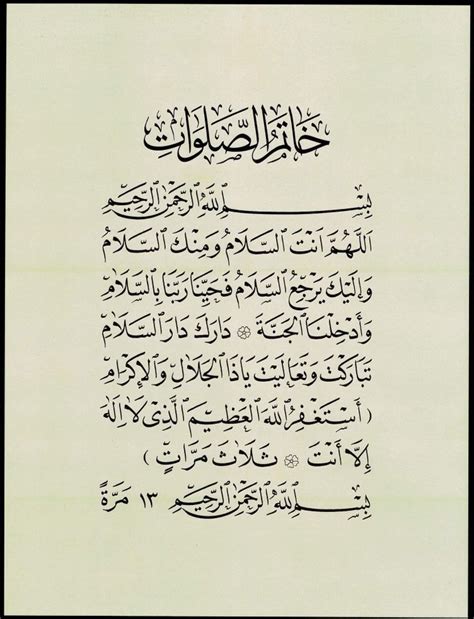 خَاتَمُ الصَّلَوَاتِ
بِسْمِ اللَّهِ الرَّحْمٰنِ الرَّحِيْمِ
اَللّٰهُمَّ اَنْتَ السَّلَامُ وَمِنْكَ السَّلَامُ
وَاِلَيْكَ يَرْجِعُ السَّلَامُ فَحَيِّنَا رَبَّنَا بِالسَّلَامِ
وَأَدْخِلْنَا الْجَنَّةَ ۞ دَارَكَ دَارَ السَّلَامِ
تَبَارَكْتَ وَتَعَالَيْتَ يَاذَا الْجَلَالِ وَالْإِكْرَامِ
( أَسْتَغْفِرُ اللَّهَ الْعَظِيْمَ الَّذِيْ لَا اِلٰهَ
اِلَّا أَنْتَ ۞ ثَلَاثَ مَرَّاتٍ )
بِسْمِ اللَّهِ الرَّحْمٰنِ الرَّحِيْمِ ١٣ مَرَّةً